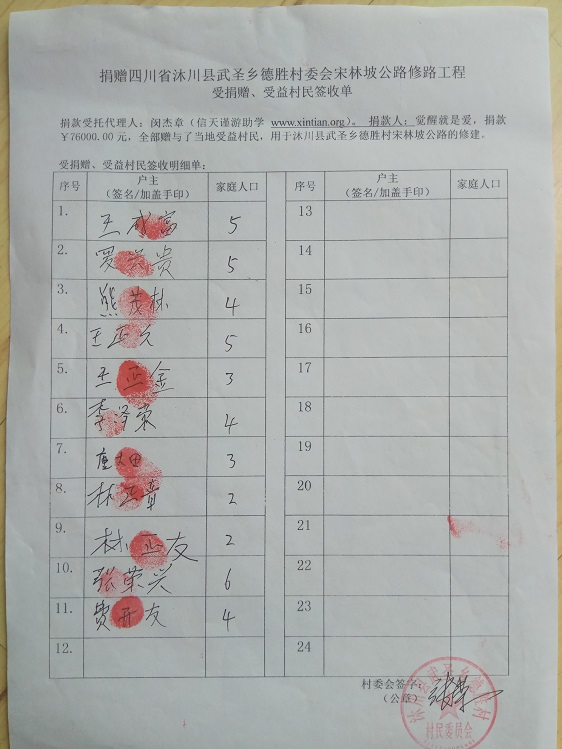 捐赠四川省沐川县武圣乡德胜村委会宋林坡公路修路工程
受捐赠、受益村民签收单
捐款受托代理人：闵杰章（信天谨游助学 www.xintian.org）。 捐款人：觉醒就是爱，捐款
￥76000.00 元，全部赠与了当地受益村民，用于沐川县武圣乡德胜村宋林坡公路的修建。
受捐赠、受益村民签收明细单：
序号 户主（签名/加盖手印） 家庭人口 序号 户主（签名/加盖手印） 家庭人口
1. 王成富 5 13
2. 罗兴贵 5 14
3. 熊茂林 4 15
4. 王正久 5 16
5. 王正金 3 17
6. 李泽荣 4 18
7. 3 19
8. 林正章 2 20
9. 林正友 2 21
10. 张荣兴 6 22
11. 费开友 4 23
12. 24
村委会签字：
（公章）
村民委员会